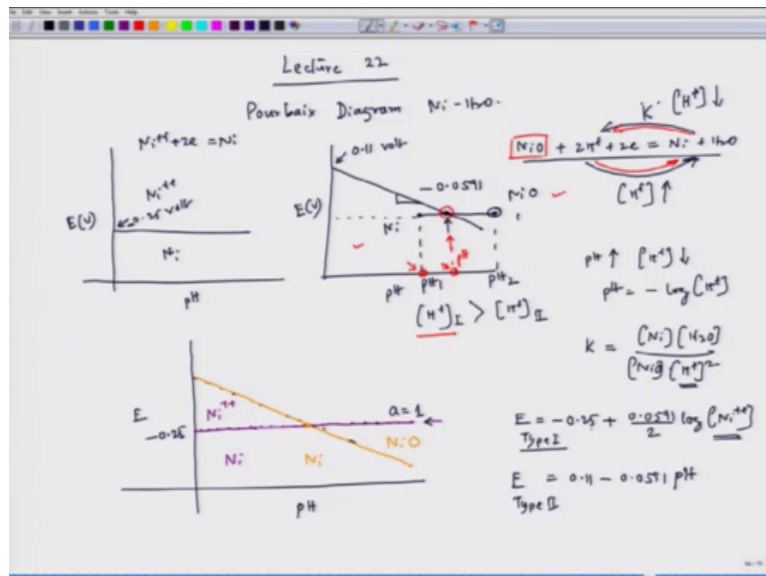 Lecture 22
Pourbaix Diagram Ni-H2O.
Ni++ + 2e = Ni
Ni++
-0.25 volt
E(V)
Ni
pH
0.11 volt
-0.0591
E(V)
Ni
NiO
pH
pH
pH1
pH2
[H+]I > [H+]II
K
[H+]↓
NiO + 2H+ + 2e = Ni + H2O
[H+]↑
pH ↑ [H+]↓
pH = - log [H+]
K = [Ni][H2O] / [NiO][H+]2
E = -0.25 + 0.0591/2 log [Ni++]
Type I
E = 0.11 - 0.0591 pH
Type II
E
-0.25
Ni++
a=1
Ni
Ni
NiO
pH